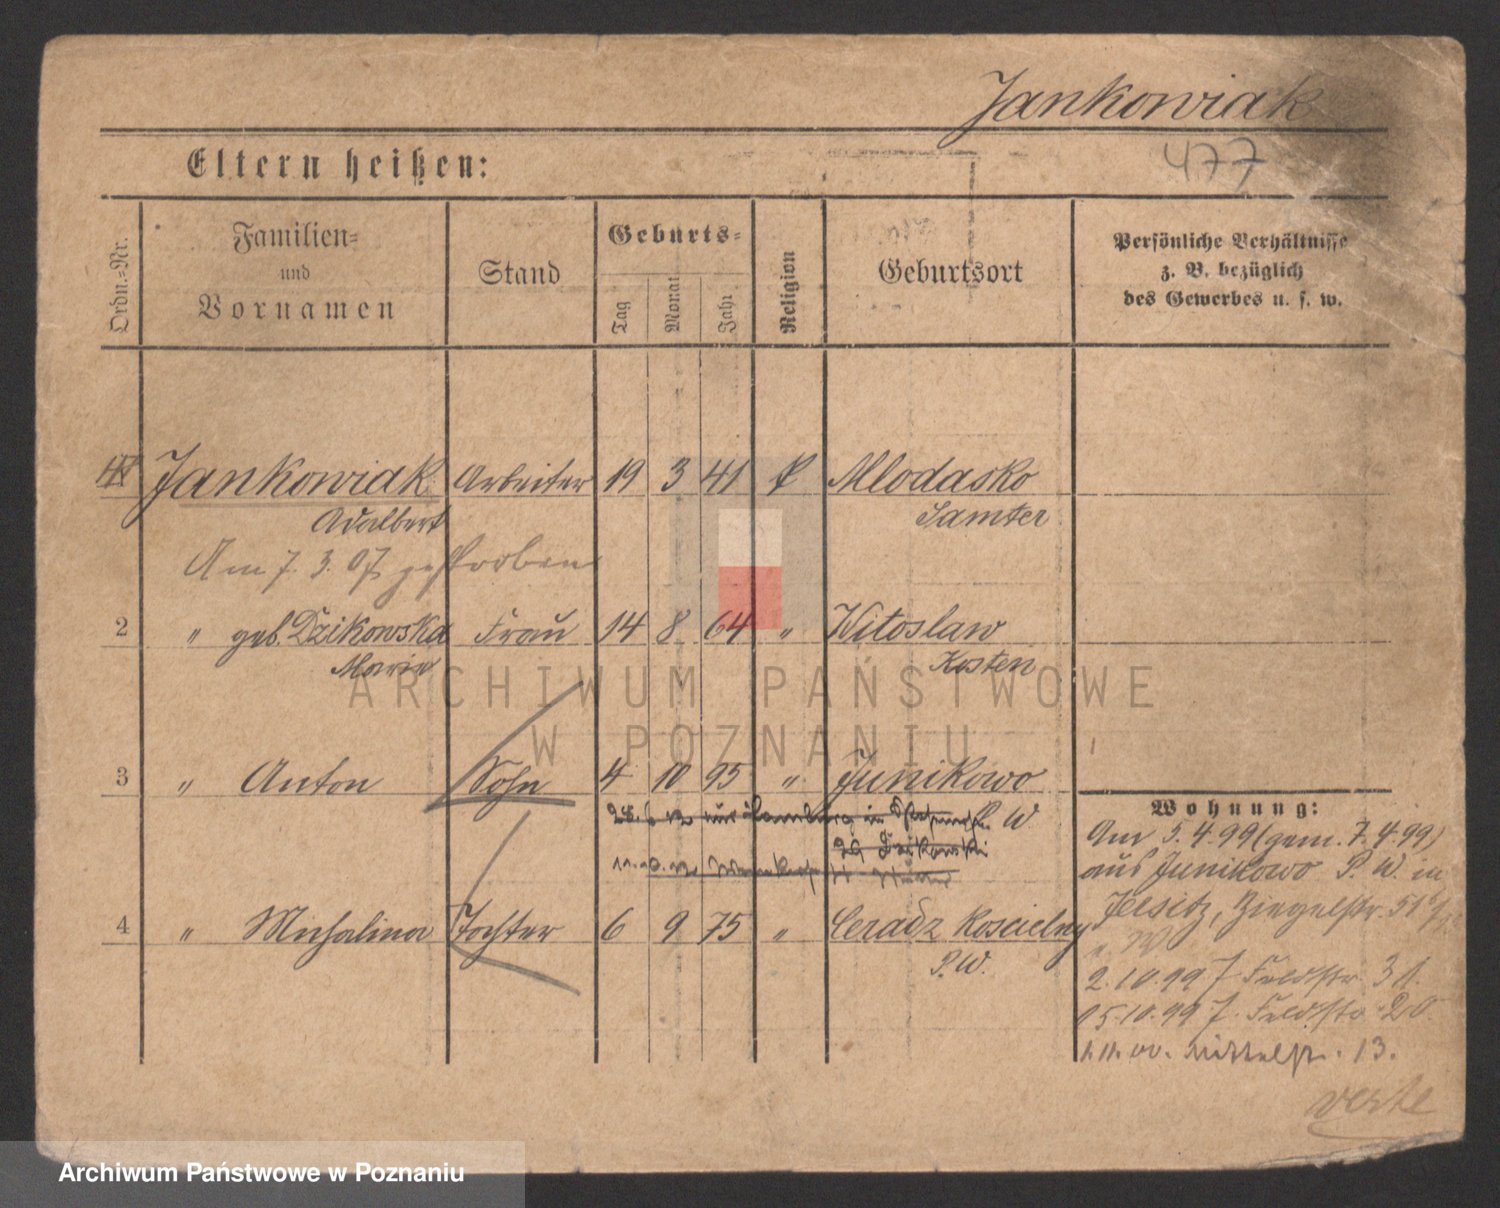 Jankowiak
477
Eltern heißen:
Ordn.=Nr.
Familien=
und
Vornamen
Stand
Geburts=
Tag
Monat
Jahr
Religion
Geburtsort
Persönliche Verhältnisse
z. B. bezüglich
des Gewerbes u. s. w.
Jankowiak Arbeiter 19 3 41 k Mlodasko
Adalbert Samter
Am 7. 3. 07 gestorben
2 " geb. Dzikowska Frau 14 8 64 " Witoslaw
Marie Kosten
3 " Anton Sohn 4 10 95 " Junikowo
P. W.
29 Dzikowski
4 " Michalina Tochter 6 9 75 " Ceradz Koscielny
P. W.
Wohnung:
Am 5. 4. 99 (gem. 7. 4. 99)
aus Junikowo P. W. in
Jersitz, Ziegelstr. 51
2. 10. 99 J. Feldstr. 31.
15. 10. 99 J. Feldstr. 20.
1. 11. 00. Mittelstr. 13.
verte
ARCHIWUM PAŃSTWOWE
W POZNANIU
Archiwum Państwowe w Poznaniu